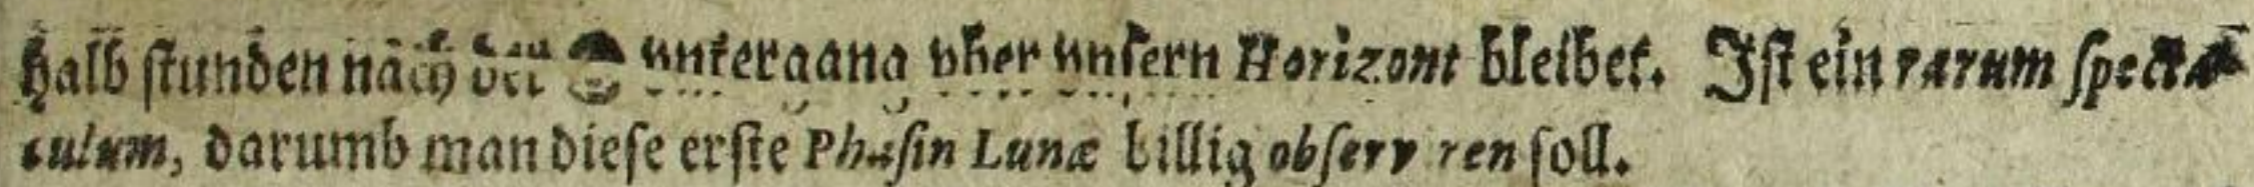 halb stunden nach der ☉ untergang vber vnsern Horizont bleibet. Ist ein rarum specta-
culum, darumb man diese erste Phasin Lunæ billig observiren soll.